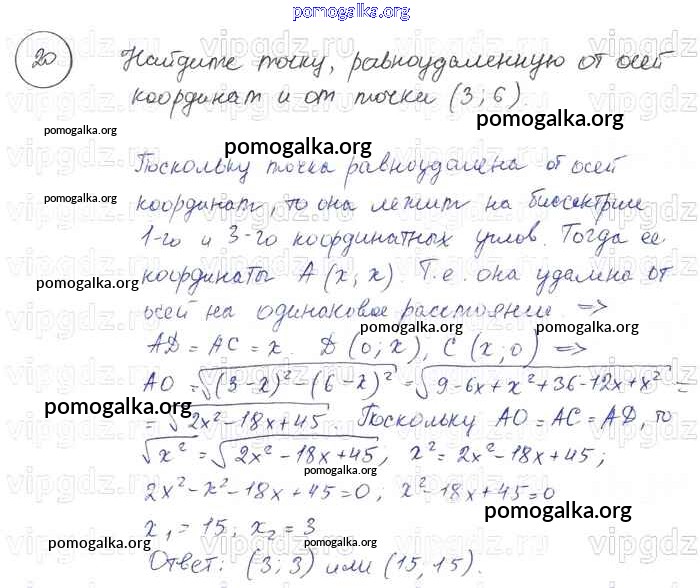 pomogalka.org
20 Найдите точку, равноудаленную от осей
координат и от точки (3; 6).
pomogalka.org
pomogalka.org
Поскольку точка равноудалена от осей
pomogalka.org
координат, то она лежит на биссектрисе
pomogalka.org
1-го и 3-го координатных углов. Тогда ее
координаты A (x; x). Т.е. она удалена от
pomogalka.org
осей на одинаковое расстояние. =>
pomogalka.org pomogalka.org
AD = AC = x D (0; x), C (x; 0) =>
AO = √(3-x)² - (6-x)² = √9-6x+x²+36-12x+x² =
pomogalka.org
= √2x²-18x+45. Поскольку AO = AC = AD, то
pomogalka.org
√x² = √2x²-18x+45, x² = 2x²-18x+45;
pomogalka.org
2x²-x²-18x+45=0; x²-18x+45=0
pomogalka.org
x₁ = 15; x₂ = 3
pomogalka.org
Ответ: (3; 3) или (15; 15).
pomogalka.org
vipgdz.ru